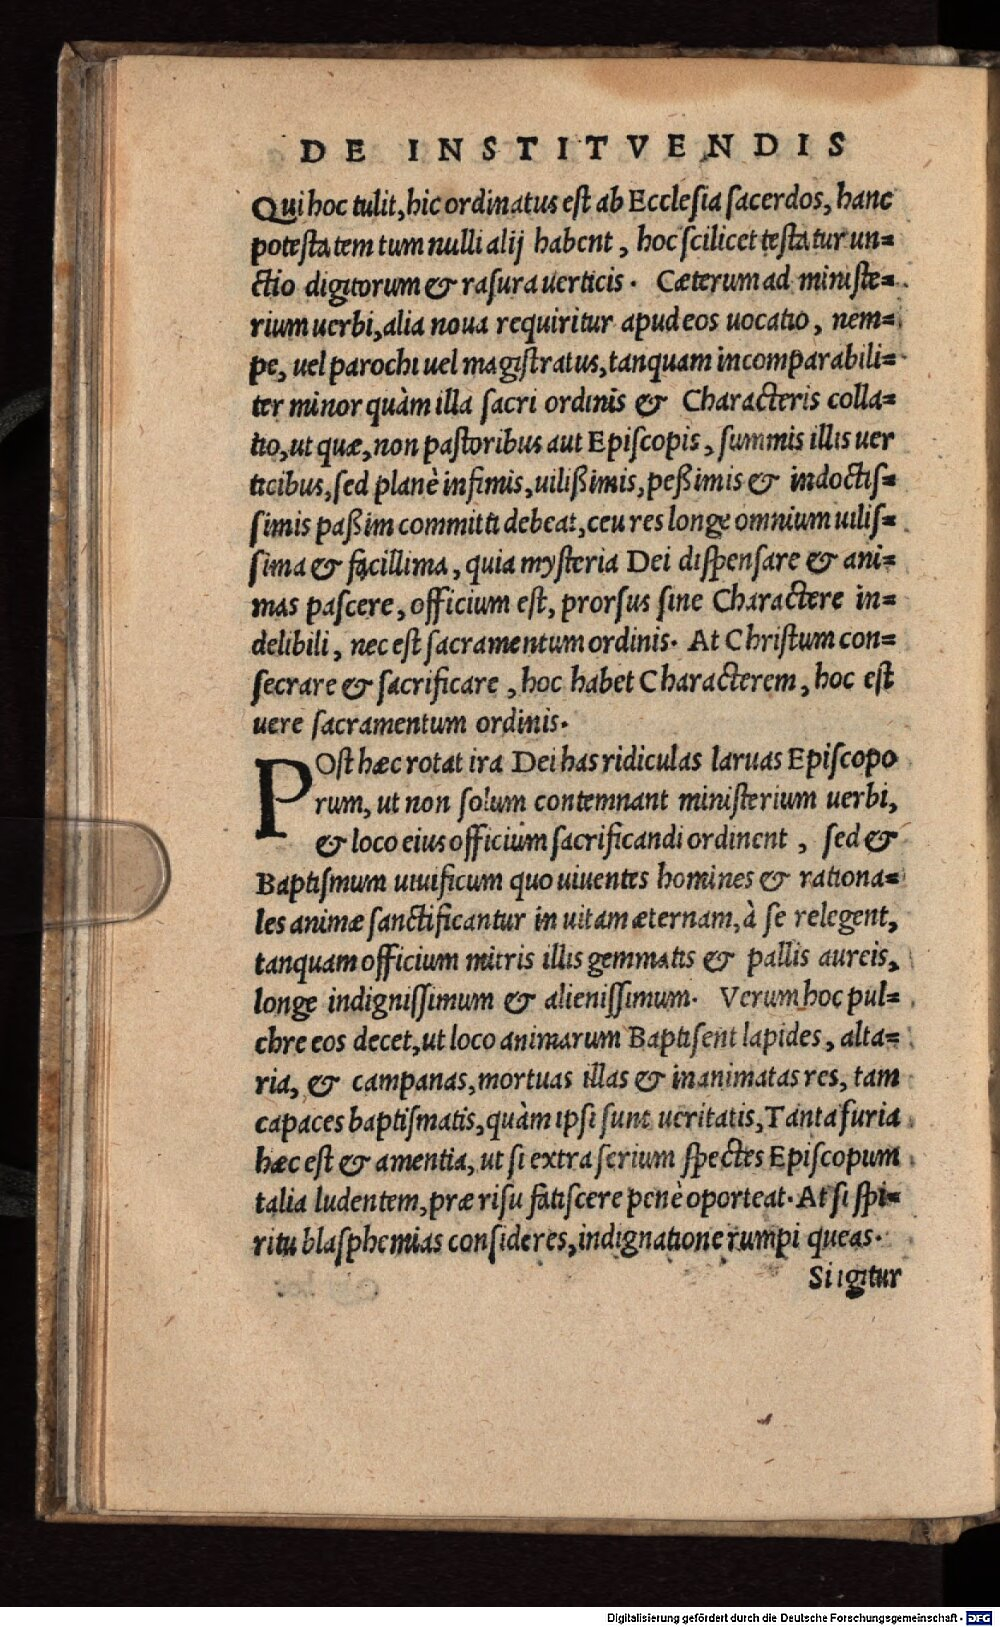 DE INSTITVENDIS
Qui hoc tulit, hic ordinatus est ab Ecclesia sacerdos, hanc
potestatem tum nulli alij habent, hoc scilicet testatur un=
ctio digitorum & rasura uerticis. Cæterum ad ministe=
rium uerbi, alia noua requiritur apud eos uocatio, nem=
pe, uel parochi uel magistratus, tanquam incomparabili=
ter minor quàm illa sacri ordinis & Characteris colla=
tio, ut quæ, non pastoribus aut Episcopis, summis illis uer
ticibus, sed planè infimis, uilißimis, peßimis & indoctis=
simis paßim committi debeat, ceu res longe omnium uilis=
sima & facillima, quia mysteria Dei dispensare & ani=
mas pascere, officium est, prorsus sine Charactere in=
delibili, nec est sacramentum ordinis. At Christum con=
secrare & sacrificare, hoc habet Characterem, hoc est
uere sacramentum ordinis.
POst hæc rotat ira Dei has ridiculas laruas Episcopo
rum, ut non solum contemnant ministerium uerbi,
& loco eius officium sacrificandi ordinent, sed &
Baptismum uiuificum quo uiuentes homines & rationa=
les animæ sanctificantur in uitam æternam, à se relegent,
tanquam officium mitris illis gemmatis & pallis aureis,
longe indignissimum & alienissimum. Verum hoc pul=
chre eos decet, ut loco animarum Baptisent lapides, alta=
ria, & campanas, mortuas illas & inanimatas res, tam
capaces baptismatis, quàm ipsi sunt ueritatis, Tanta furia
hæc est & amentia, ut si extra serium spectes Episcopum
talia ludentem, præ risu fatiscere penè oporteat. At si spi=
ritu blasphemias consideres, indignatione rumpi queas.
Si igitur
Digitalisierung gefördert durch die Deutsche Forschungsgemeinschaft - DFG